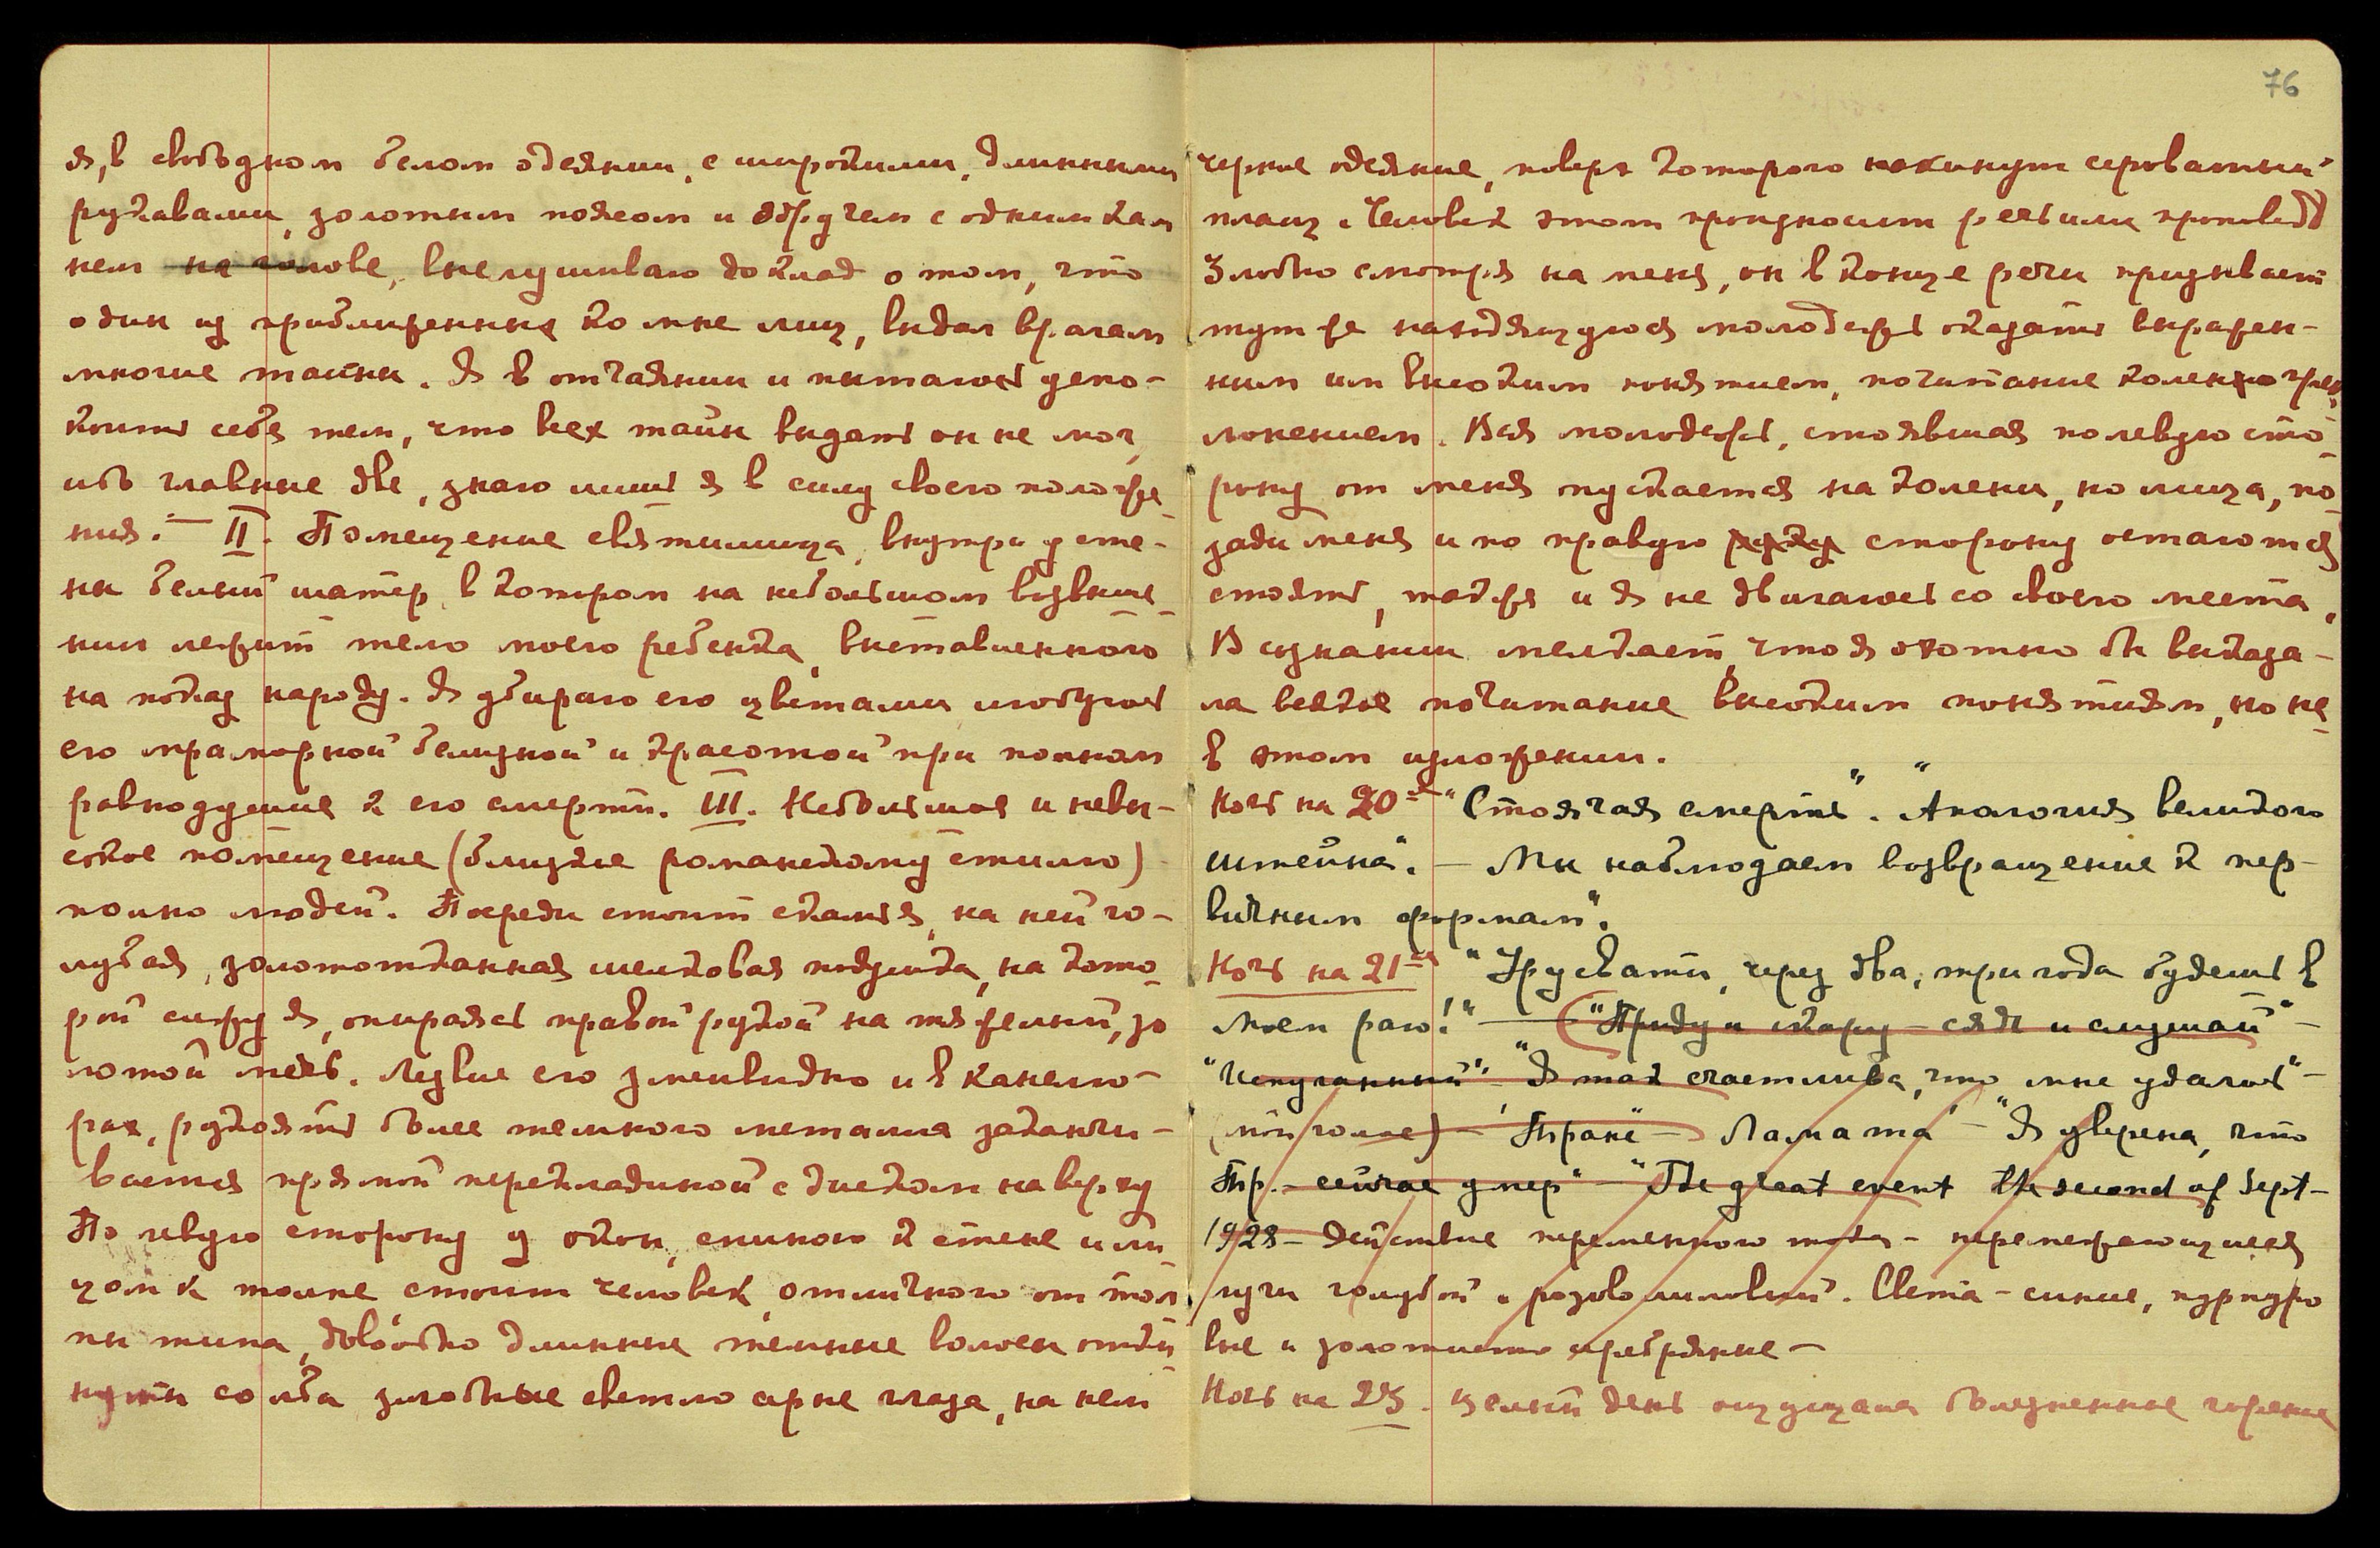 я, в свободном белом одеянии, с широкими, длинными
рукавами, золотным поясом и обручем с одним кам
нем на голове, выслушиваю доклад о том, что
один из приближенных ко мне лиц, выдал врагам
многие тайны. Я в отчаянии и пытаюсь успо-
коить себя тем, что всех тайн выдать он не мог,
ибо главные две, знаю лишь я в силу своего положе
ния. — II. Помещение святилища, внутри у сте-
ны белый шатер, в котором на небольшом возвыше
нии лежит тело моего ребенка, выставленного
на показ народу. Я убираю его цветами и любуюсь
его мраморной белизной и красотой при полном
равнодушие к его смерти. III. Небольшое и невы-
сокое помещение (близкое романскому стилю)
полно людей. Посреди стоит скамья, на ней го-
лубая, золототканная шелковая подушка, на кото
рой сижу я, опираясь правой рукой на тяжелый, зо
лотой меч. Лезвие его змеевидно и в канелю-
рах, рукоять более темного металла заканчи-
вается прямой перекладиной с диском на верху
По левую сторону у окон, спиною к стене и ли
цом к толпе стоит человек, отличного от тол
пы типа, довольно длинные темные волосы откин
нуты со лба злобные светло серые глаза, на нем
76
черное одеяние, поверх которого накинут сероватый
плащ. Человек этот произносит речь или проповедь
Злобно смотря на меня, он в конце речи призывает
тут же находящуюся молодежь оказать выражен-
ным им высоким понятием, почитание коленопрек
лонением. Вся молодежь, стоявшая по левую сто
рону от меня опускается на колени, но лица, по
зади меня и по правую руку сторону остаются
стоять, также и я не двигаюсь со своего места.
В сознании мелькает, что я охотно бы выказа-
ла всякое почитание высоким понятиям, но не
в этом изложении.
Ночь на 20-ое "Стоячая смерть". "Апология великого
штейна". — Мы наблюдаем возвращение к пер-
вичным формам".
Ночь на 21-ое "Урусвати, через два, три года будешь в
моем раю!" — ("Приду и скажу — сядь и слушай" —
"Испуганный" — "Я так счастлива, что мне удалось" —
(мой голос) — "Транс" — Ламата — "Я уверена, что
Тр. — сейчас умер" — "The great event the second of Sept —
1928 — Действие переменного тока — перемежающиеся
лучи голубой и розово лиловый. Света — синие, пурпуро
вые и золотисто серебряные —
Ночь на 23. Целый день ощущала болезненное горение